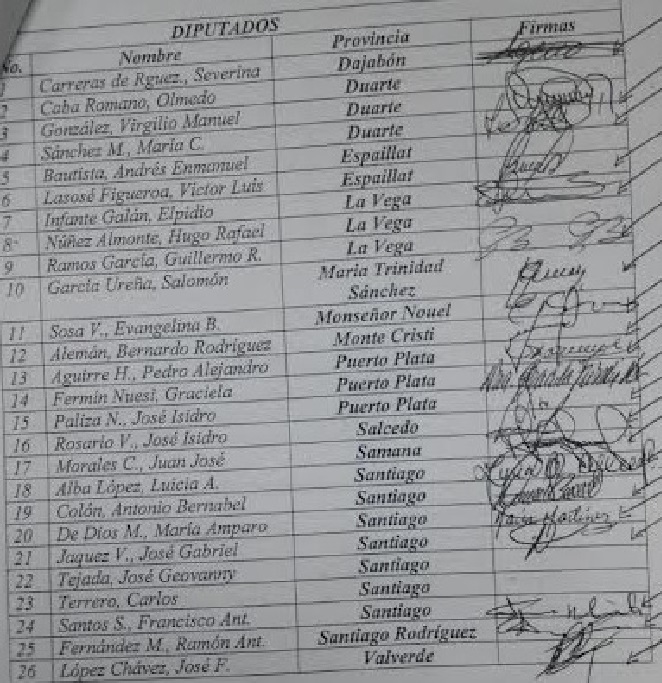 DIPUTADOS
No. Nombre Provincia Firmas
1 Carreras de Rguez., Severina Dajabón
2 Caba Romano, Olmedo Duarte
3 González, Virgilio Manuel Duarte
4 Sánchez M., María C. Duarte
5 Bautista, Andrés Enmanuel Espaillat
6 Lasosé Figueroa, Victor Luis Espaillat
7 Infante Galán, Elpidio La Vega
8 Núñez Almonte, Hugo Rafael La Vega
9 Ramos García, Guillermo R. La Vega
10 García Ureña, Salomón Maria Trinidad
Sánchez
11 Sosa V., Evangelina B. Monseñor Nouel
12 Alemán, Bernardo Rodríguez Monte Cristi
13 Aguirre H., Pedro Alejandro Puerto Plata
14 Fermín Nuesi, Graciela Puerto Plata
15 Paliza N., José Isidro Puerto Plata
16 Rosario V., José Isidro Salcedo
17 Morales C., Juan José Samana
18 Alba López, Luicia A. Santiago
19 Colón, Antonio Bernabel Santiago
20 De Dios M., María Amparo Santiago
21 Jaquez V., José Gabriel Santiago
22 Tejada, José Geovanny Santiago
23 Terrero, Carlos Santiago
24 Santos S., Francisco Ant. Santiago
25 Fernández M., Ramón Ant. Santiago Rodríguez
26 López Chávez, José F. Valverde